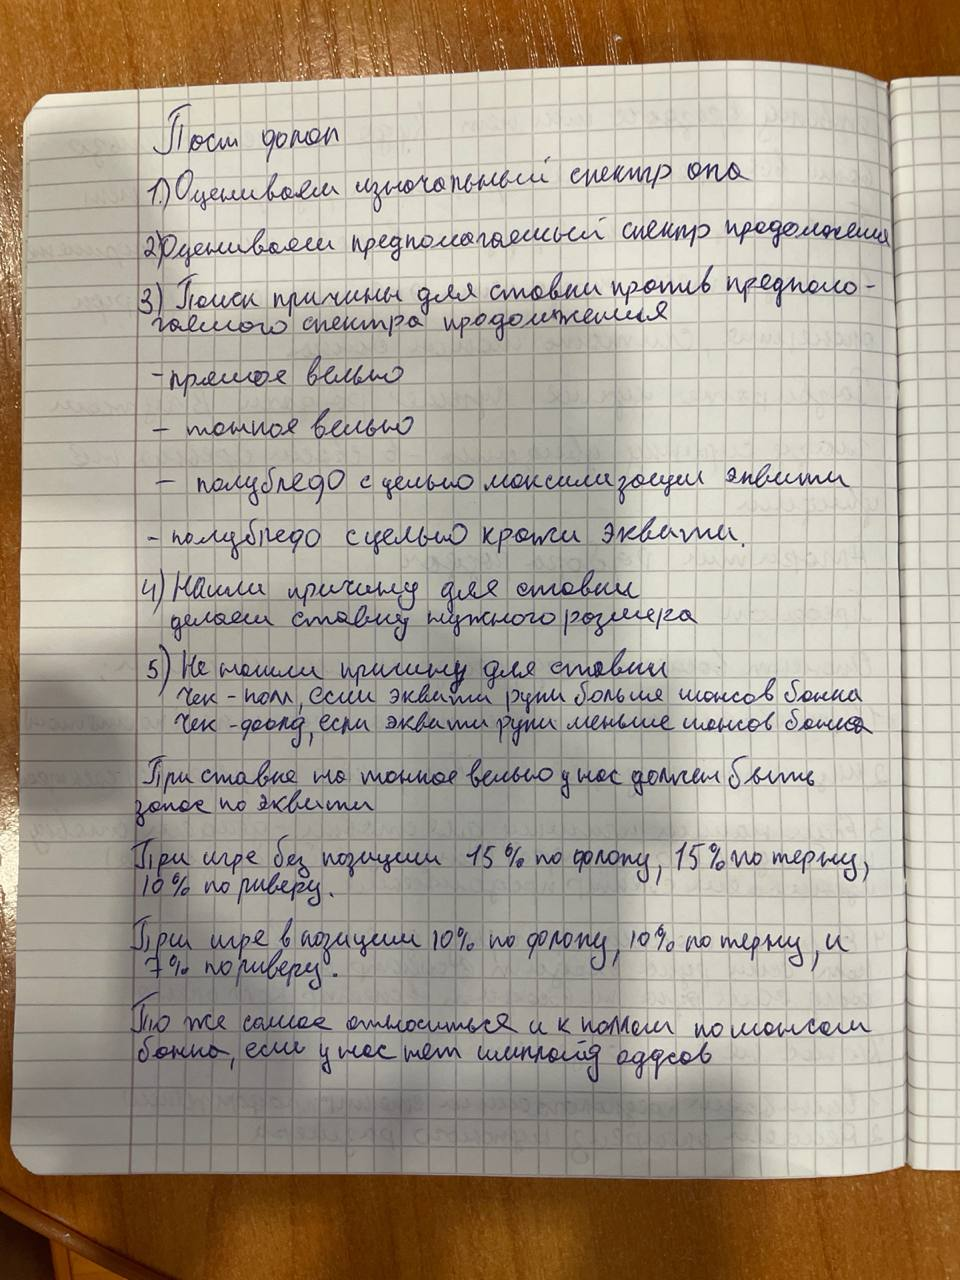 Пост флоп
1.) Оцениваем изначальный спектр опа
2) Оцениваем предполагаемый спектр продолжения
3) Поиск причины для ставки против предполо-
гаемого спектра продолжения
- прямое велью
- тонкое велью
- полублеф с целью максимизации эквити
- полублеф с целью кражи эквити.
4) Нашли причину для ставки
делаем ставку нужного размера
5) Не нашли причину для ставки
Чек - колл, если эквити руки больше шансов банка
Чек - фолд, если эквити руки меньше шансов банка
При ставке на тонкое велью у нас должен быть
запас по эквити
При игре без позиции 15% по флопу, 15% по терну,
10% по риверу.
При игре в позиции 10% по флопу, 10% по терну, и
7% по риверу.
То же самое относиться и к коллам по шансам
банка, если у нас нет имплайд оддсов